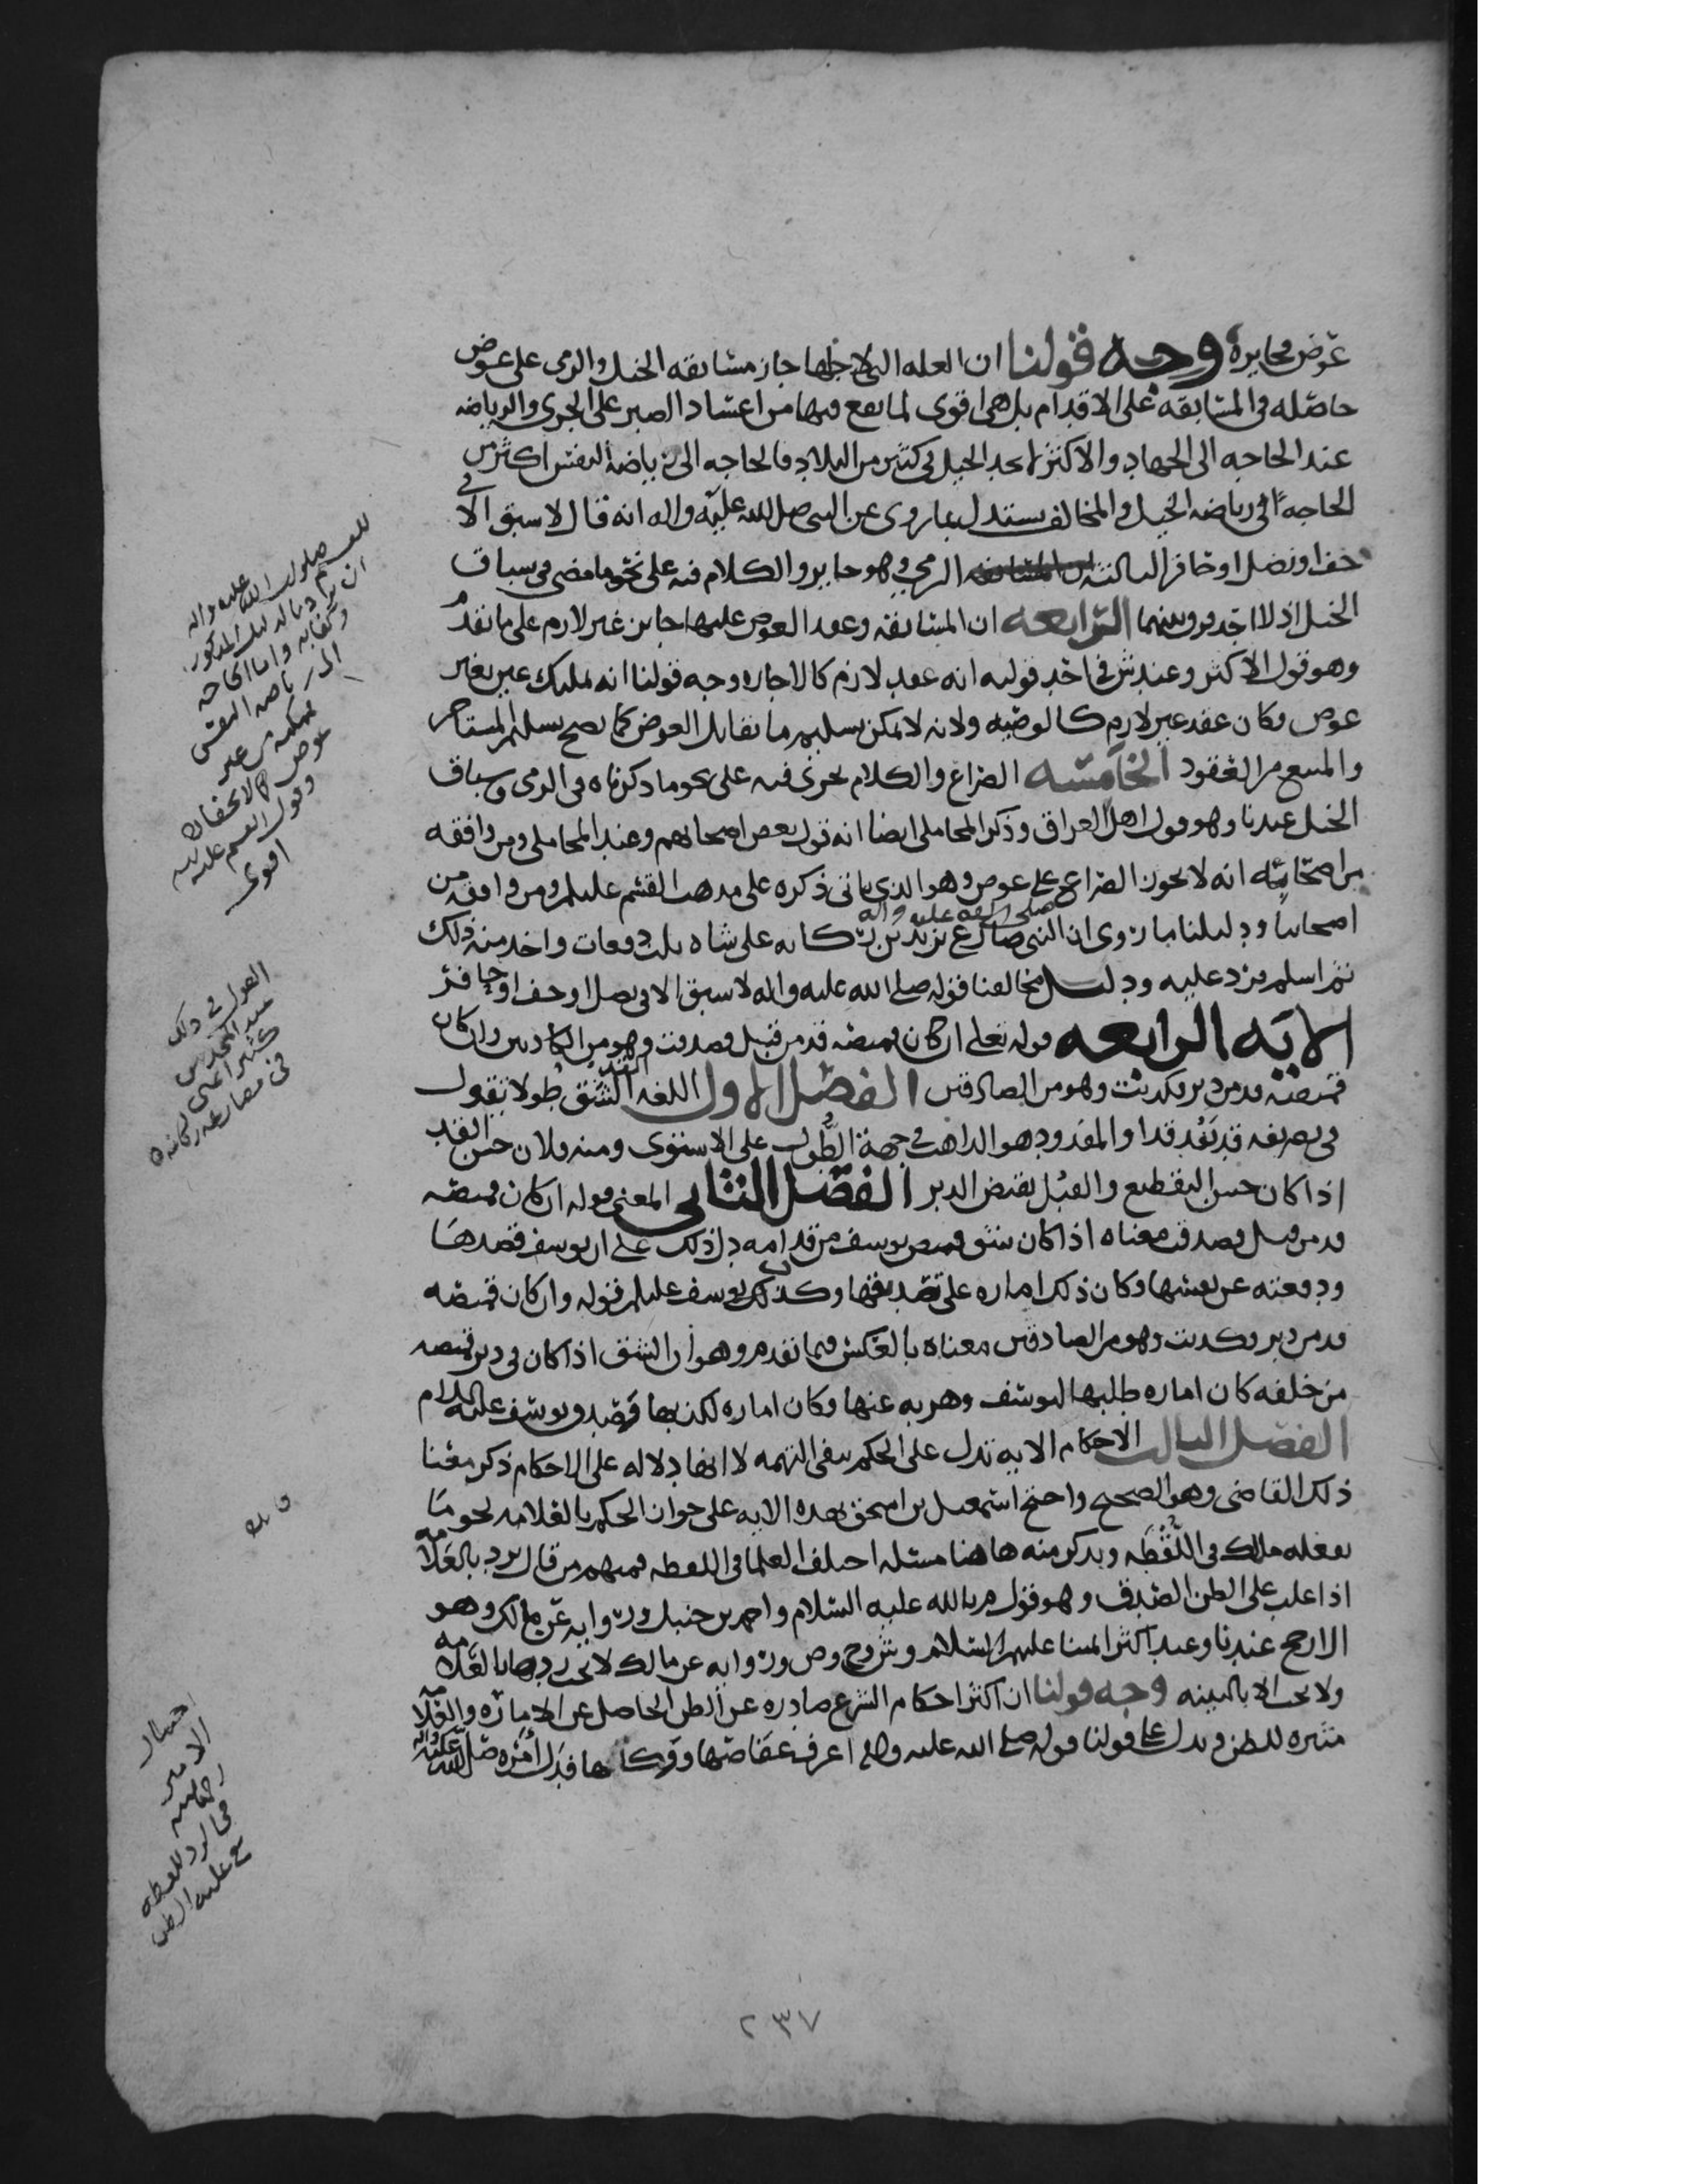 عوض محابره وجه قولنا ان العله التي لاجلها جاز مسابقه الخيل والرمي على عوض
حاصله في المسابقه على الاقدام بل هي اقوى لما يقع فيها من اعتياد الصبر على الجري والرياضه
عند الحاجه الى الجهاد والاكثر لا يجد الخيل في كثير من البلاد فالحاجه الى رياضة النفس اكثر من
الحاجة الى رياضه الخيل والمخالف يستدل بما روي عن النبي صلى الله عليه واله انه قال لا سبق الا في
خف او نصل او حافر الثالثه الرمي وهو جايز والكلام فيه على نحو ما مضى في سباق
الخيل اذ لا احد فرق بينهما الرابعه ان المسابقه وعقد العوض عليها جايز غير لازم على ما تقدم
وهو قول الاكثر وعند ش في احد قوليه انه عقد لازم كالاجاره وجه قولنا انه تمليك عين بغير
عوض فكان عقد غير لازم كالوصيه ولانه لا يمكن تسليم ما يقابل العوض كما يصح تسليم المستاجر
والمبيع من العقود الخامسه الصراع والكلام يجري فيه على نحو ما ذكرناه في الرمي وسباق
الخيل عندنا وهو قول اهل العراق وذكر المحاملي ايضا انه قول بعض اصحابهم وعند المحاملي ومن وافقه
من اصحابه انه لا يجوز الصراع على عوض وهو الذي ياتي ذكره على مذهب القسم عليلم ومن وافقه من
اصحابنا ودليلنا ما روي ان النبي صلى الله عليه واله صارع يزيد بن ركانه على شاه ثلث دفعات واخذ منه ذلك
ثم اسلم فرد عليه ودليل مخالفنا قوله صلى الله عليه واله لا سبق الا في نصل او خف او حافر
الايه الرابعه قوله تعلى ان كان قميصه قد من قبل فصدقت وهو من الكاذبين وان كان
قميصه قد من دبر فكذبت وهو من الصادقين الفصل الاول اللغه القد الشق طولا تقول
في تصريفه قد يقد قدا والمقدود هو الذاهب في جهة الطول على الاستوى ومنه فلان حسن القد
اذا كان حسن التقطيع والقبل نقيض الدبر الفصل الثاني المعنى قوله ان كان قميصه
قد من قبل فصدقت معناه اذا كان شق قميص يوسف من قدامه دل ذلك على ان يوسف قصدها
ودفعته عن نفسها وكان ذلك اماره على تصديقها وكذب يوسف عليلم قوله وان كان قميصه
قد من دبر فكذبت وهو من الصادقين معناه بالعكس فيما تقدم وهو ان الشق اذا كان في دبر قميصه
من خلفه كان اماره طلبها ليوسف وهربه عنها وكان اماره لكذبها وصدق يوسف عليه السلام
الفصل الثالث الاحكام الايه تدل على الحكم بنفي التهمه لا انها دلاله على الاحكام ذكر معنا
ذلك القاضي وهو الصحيح واحتج اسمعيل بن اسحق بهذه الايه على جواز الحكم بالعلامه نحو ما
يفعله مالك في اللقطه ويذكر منه هاهنا مسئله اختلف العلما في اللقطه فمنهم من قال ترد بالعلامه
اذا غلب على الظن الصدق وهو قول م بالله عليه السلام واحمد بن حنبل وروايه عن مالك وهو
الارجح عندنا وعند اكثر ائمتنا عليهم السلام وش وح وص وروايه عن مالك لا يجب ردها بالعلامه
ولا يجب الا بالبينه وجه قولنا ان اكثر احكام الشرع صادره عن الظن الحاصل عن الاماره والعلامه
مثيره للظن ويدل على قولنا قوله صلى الله عليه واله اعرف عفاصها ووكاها فدل امره صلى الله عليه واله
القول في ذلك
عند
كثير اعني
في مصارعه ركانه
اختيار
الامير
رحمه الله
في الرد للقطه
مع غلبه الظن
٢٣٧